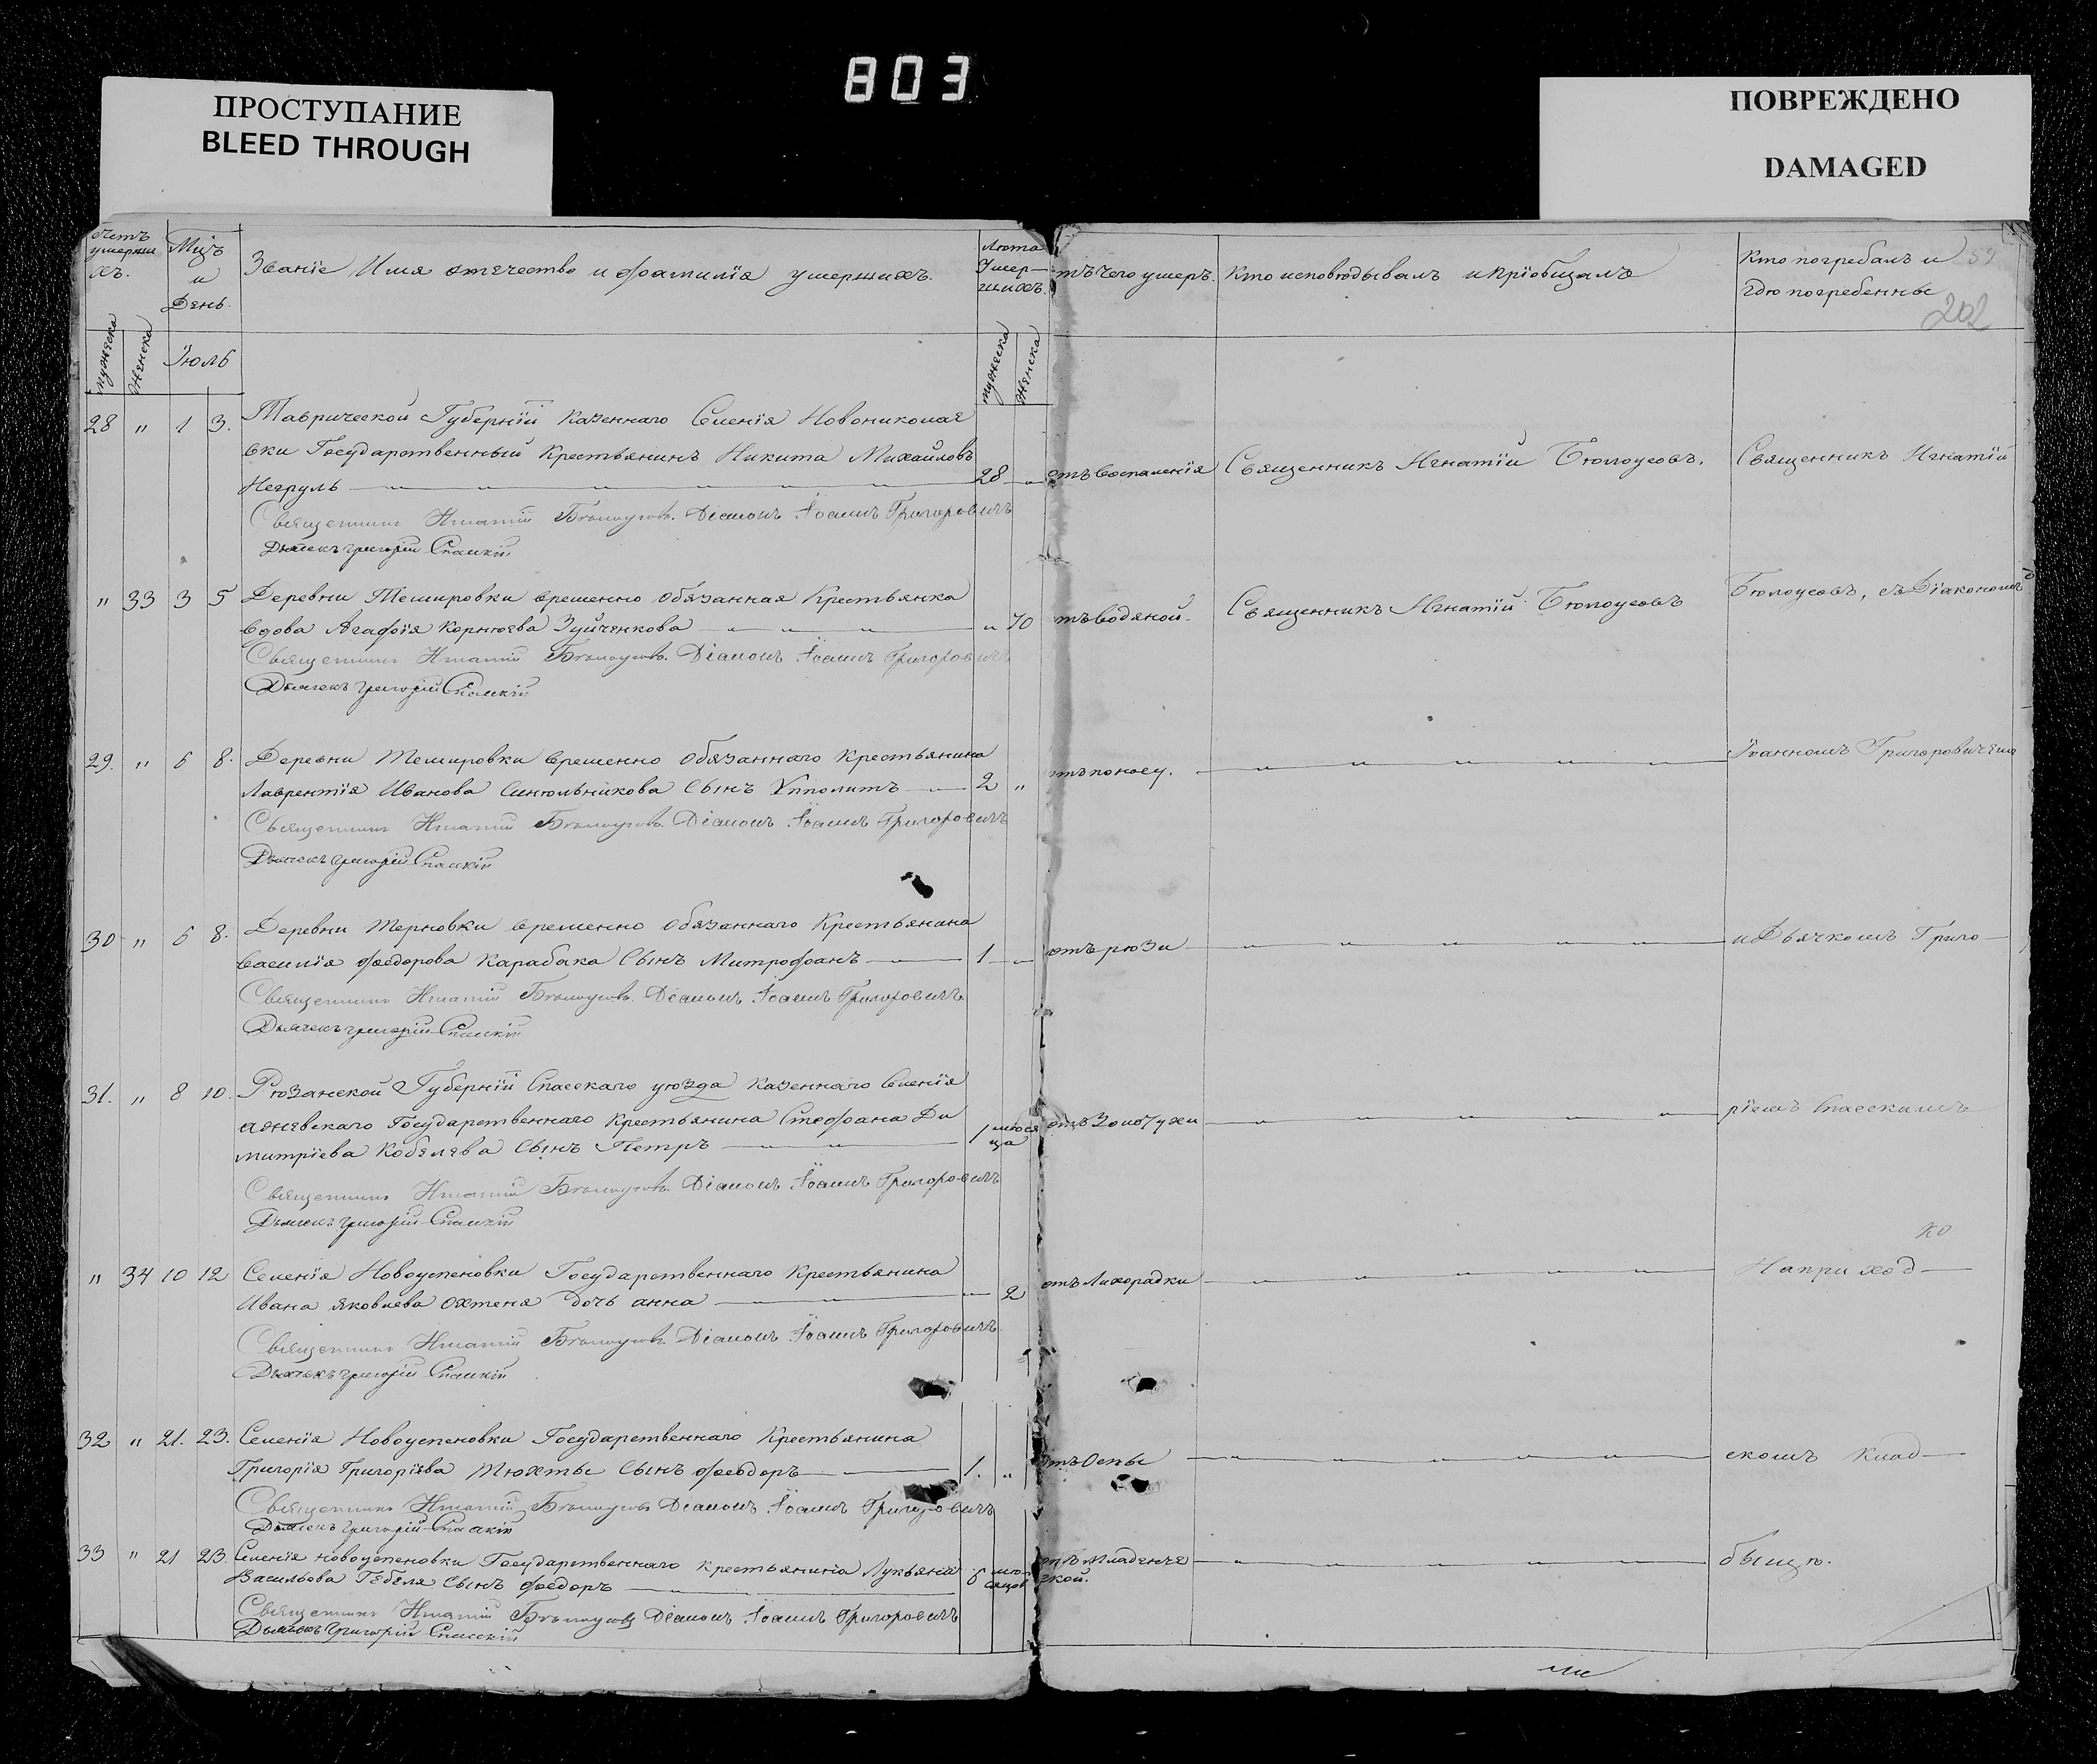 803
ПРОСТУПАНИЕ
BLEED THROUGH
ПОВРЕЖДЕНО
DAMAGED
Счетъ умерши хъ.
Мцъ и День.
Званіе Имя отечество и фамилія умершихъ.
Лѣта Умер- шихъ.
отъ чего умеръ.
Кто исповѣдывалъ и пріобщалъ
Кто погребалъ и гдѣ погребенны
59
202
мужеска
женска
Іюль
мужеска
женска
28 " 1 3. Таврической Губерніи Казеннаго Селенія Новониколае
вки Государственный Крестьянинъ Никита Михайловъ
Негруль 28 отъ воспаленія Священникъ Игнатій Бѣлоусовъ. Священникъ Игнатій
Священникъ Игнатій Бѣлоусовъ. Діаконъ Іоаннъ Григоровичъ
Дьячекъ Григорій Спасскій
" 33 3 5 Деревни Темировки временно обязанная Крестьянка
вдова Агафія Корнѣева Зуйченкова " 70 отъ водяной. Священникъ Игнатій Бѣлоусовъ Бѣлоусовъ, съ Діакономъ
Священникъ Игнатій Бѣлоусовъ. Діаконъ Іоаннъ Григоровичъ
Дьячекъ Григорій Спасскій
29. " 6 8. Деревни Темировки временно обязаннаго Крестьянина
Лаврентія Иванова Синѣльникова Сынъ Ѵпполитъ 2 " отъ поносу. Іоанномъ Григоровичемъ
Священникъ Игнатій Бѣлоусовъ. Діаконъ Іоаннъ Григоровичъ
Дьячекъ Григорій Спасскій
30 " 6 8. Деревни Терновки временно обязаннаго Крестьянина
Василія Федорова Карабака Сынъ Митрофанъ 1 отъ рѣзи и Дьячкомъ Григо
Священникъ Игнатій Бѣлоусовъ. Діаконъ Іоаннъ Григоровичъ
Дьячекъ Григорій Спасскій
31. " 8 10. Рѣзанской Губерніи Спасскаго уѣзда Казеннаго Селенія
Государственнаго Крестьянина Стефана Ди
митріева Кобелева Сынъ Петръ 1 мѣся ца отъ Золотухи ріемъ Спасскимъ
Священникъ Игнатій Бѣлоусовъ. Діаконъ Іоаннъ Григоровичъ
Дьячекъ Григорій Спасскій
" 34 10 12 Селенія Новоуспеновки Государственнаго Крестьянина
Ивана Яковлева Охтеня дочь анна 2 отъ Лихорадки На приход
ко
Священникъ Игнатій Бѣлоусовъ. Діаконъ Іоаннъ Григоровичъ
Дьячекъ Григорій Спасскій
32 " 21. 23. Селенія Новоуспеновки Государственнаго Крестьянина
Григорія Григоріева Тюхты Сынъ Феодоръ 1. " отъ Оспы скомъ Клад
Священникъ Игнатій Бѣлоусовъ Діаконъ Іоаннъ Григоровичъ
Дьячекъ Григорій Спасскій
33 " 21 23. Селенія новоуспеновки Государственнаго Крестьянина Лукьяна
Васильова Гебеля Сынъ Феодоръ 6 мѣ- сяцов отъ младенче ской. бищѣ.
Священникъ Игнатій Бѣлоусовъ Діаконъ Іоаннъ Григоровичъ
Дьячекъ Григорій Спасскій